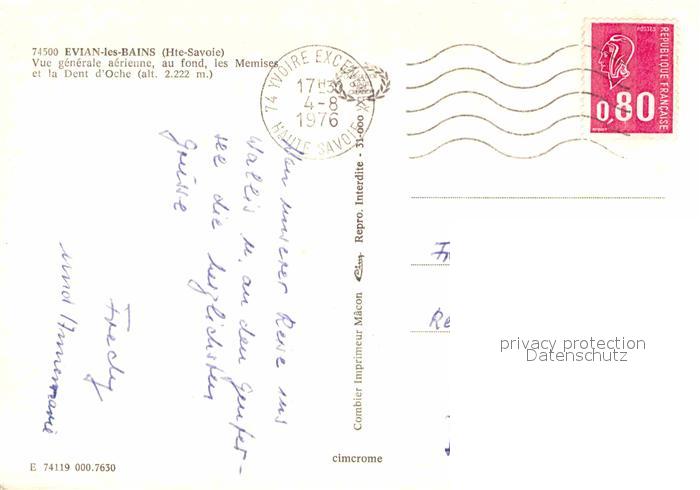 74500 EVIAN-les-BAINS (Hte-Savoie)
Vue générale aérienne, au fond, les Memises
et la Dent d'Oche (alt. 2.222 m.)
74 YVOIRE EXCEN
17H
4-8
1976
HAUTE SAVOIE
POSTES
REPUBLIQUE FRANÇAISE
0,80
Von unserer Reise ins
Wallis u. an den Genfer-
see die herzlichsten
Grüsse
Fredy
und Annemarie
Combier Imprimeur Mâcon Cim Repro. Interdite - 31-000
Fr
Re
privacy protection
Datenschutz
cimcrome
E 74119 000.7630